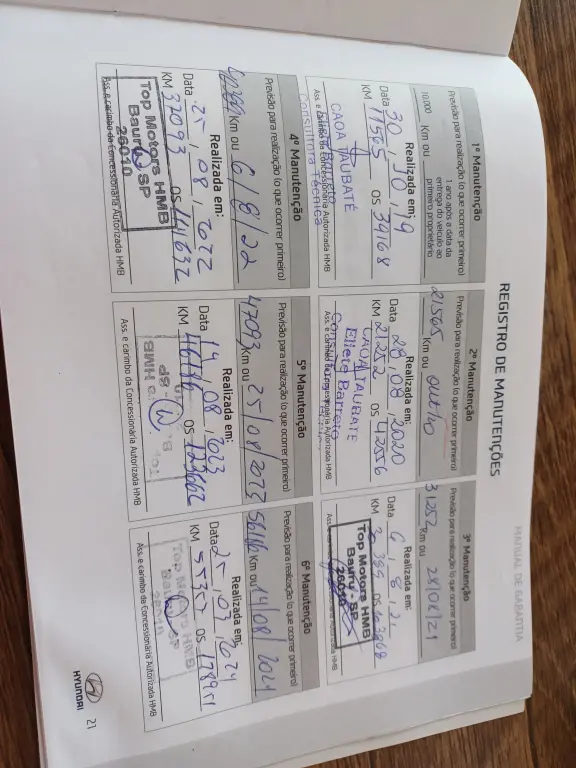 MANUAL DE GARANTIA
REGISTRO DE MANUTENÇÕES
1º Manutenção
Previsão para realização (o que ocorrer primeiro)
10.000 Km ou 1 ano após a data da entrega do veículo ao primeiro proprietário
Realizada em:
Data 30, 10, 19
KM 11565 OS 39168
CAOA TAUBATÉ
Consultora Técnica
Ass. e carimbo da Concessionária Autorizada HMB
2º Manutenção
Previsão para realização (o que ocorrer primeiro)
21565 Km ou out/20
Realizada em:
Data 28, 08, 2020
KM 21.252 OS 42556
CAOA TAUBATÉ
Eliete Barreto
Ass. e carimbo da Concessionária Autorizada HMB
3º Manutenção
Previsão para realização (o que ocorrer primeiro)
31252 Km ou 28/08/21
Realizada em:
Data 6, 8, 21
KM 30.395 OS
Top Motors HMB
Bauru - SP
26010
4º Manutenção
Previsão para realização (o que ocorrer primeiro)
Km ou 6/8/22
Realizada em:
Data 25, 08, 2022
KM 37093 OS 114632
Top Motors HMB
Bauru - SP
26010
Ass. e carimbo da Concessionária Autorizada HMB
5º Manutenção
Previsão para realização (o que ocorrer primeiro)
47093 Km ou 25/08/2023
Realizada em:
Data 14, 08, 2023
KM 46186 OS
Ass. e carimbo da Concessionária Autorizada HMB
6º Manutenção
Previsão para realização (o que ocorrer primeiro)
56186 Km ou 14/08/2024
Realizada em:
Data 25, 07, 2024
KM 55307 OS
Top Motors HMB
Bauru - SP
26010
Ass. e carimbo da Concessionária Autorizada HMB
HYUNDAI
21